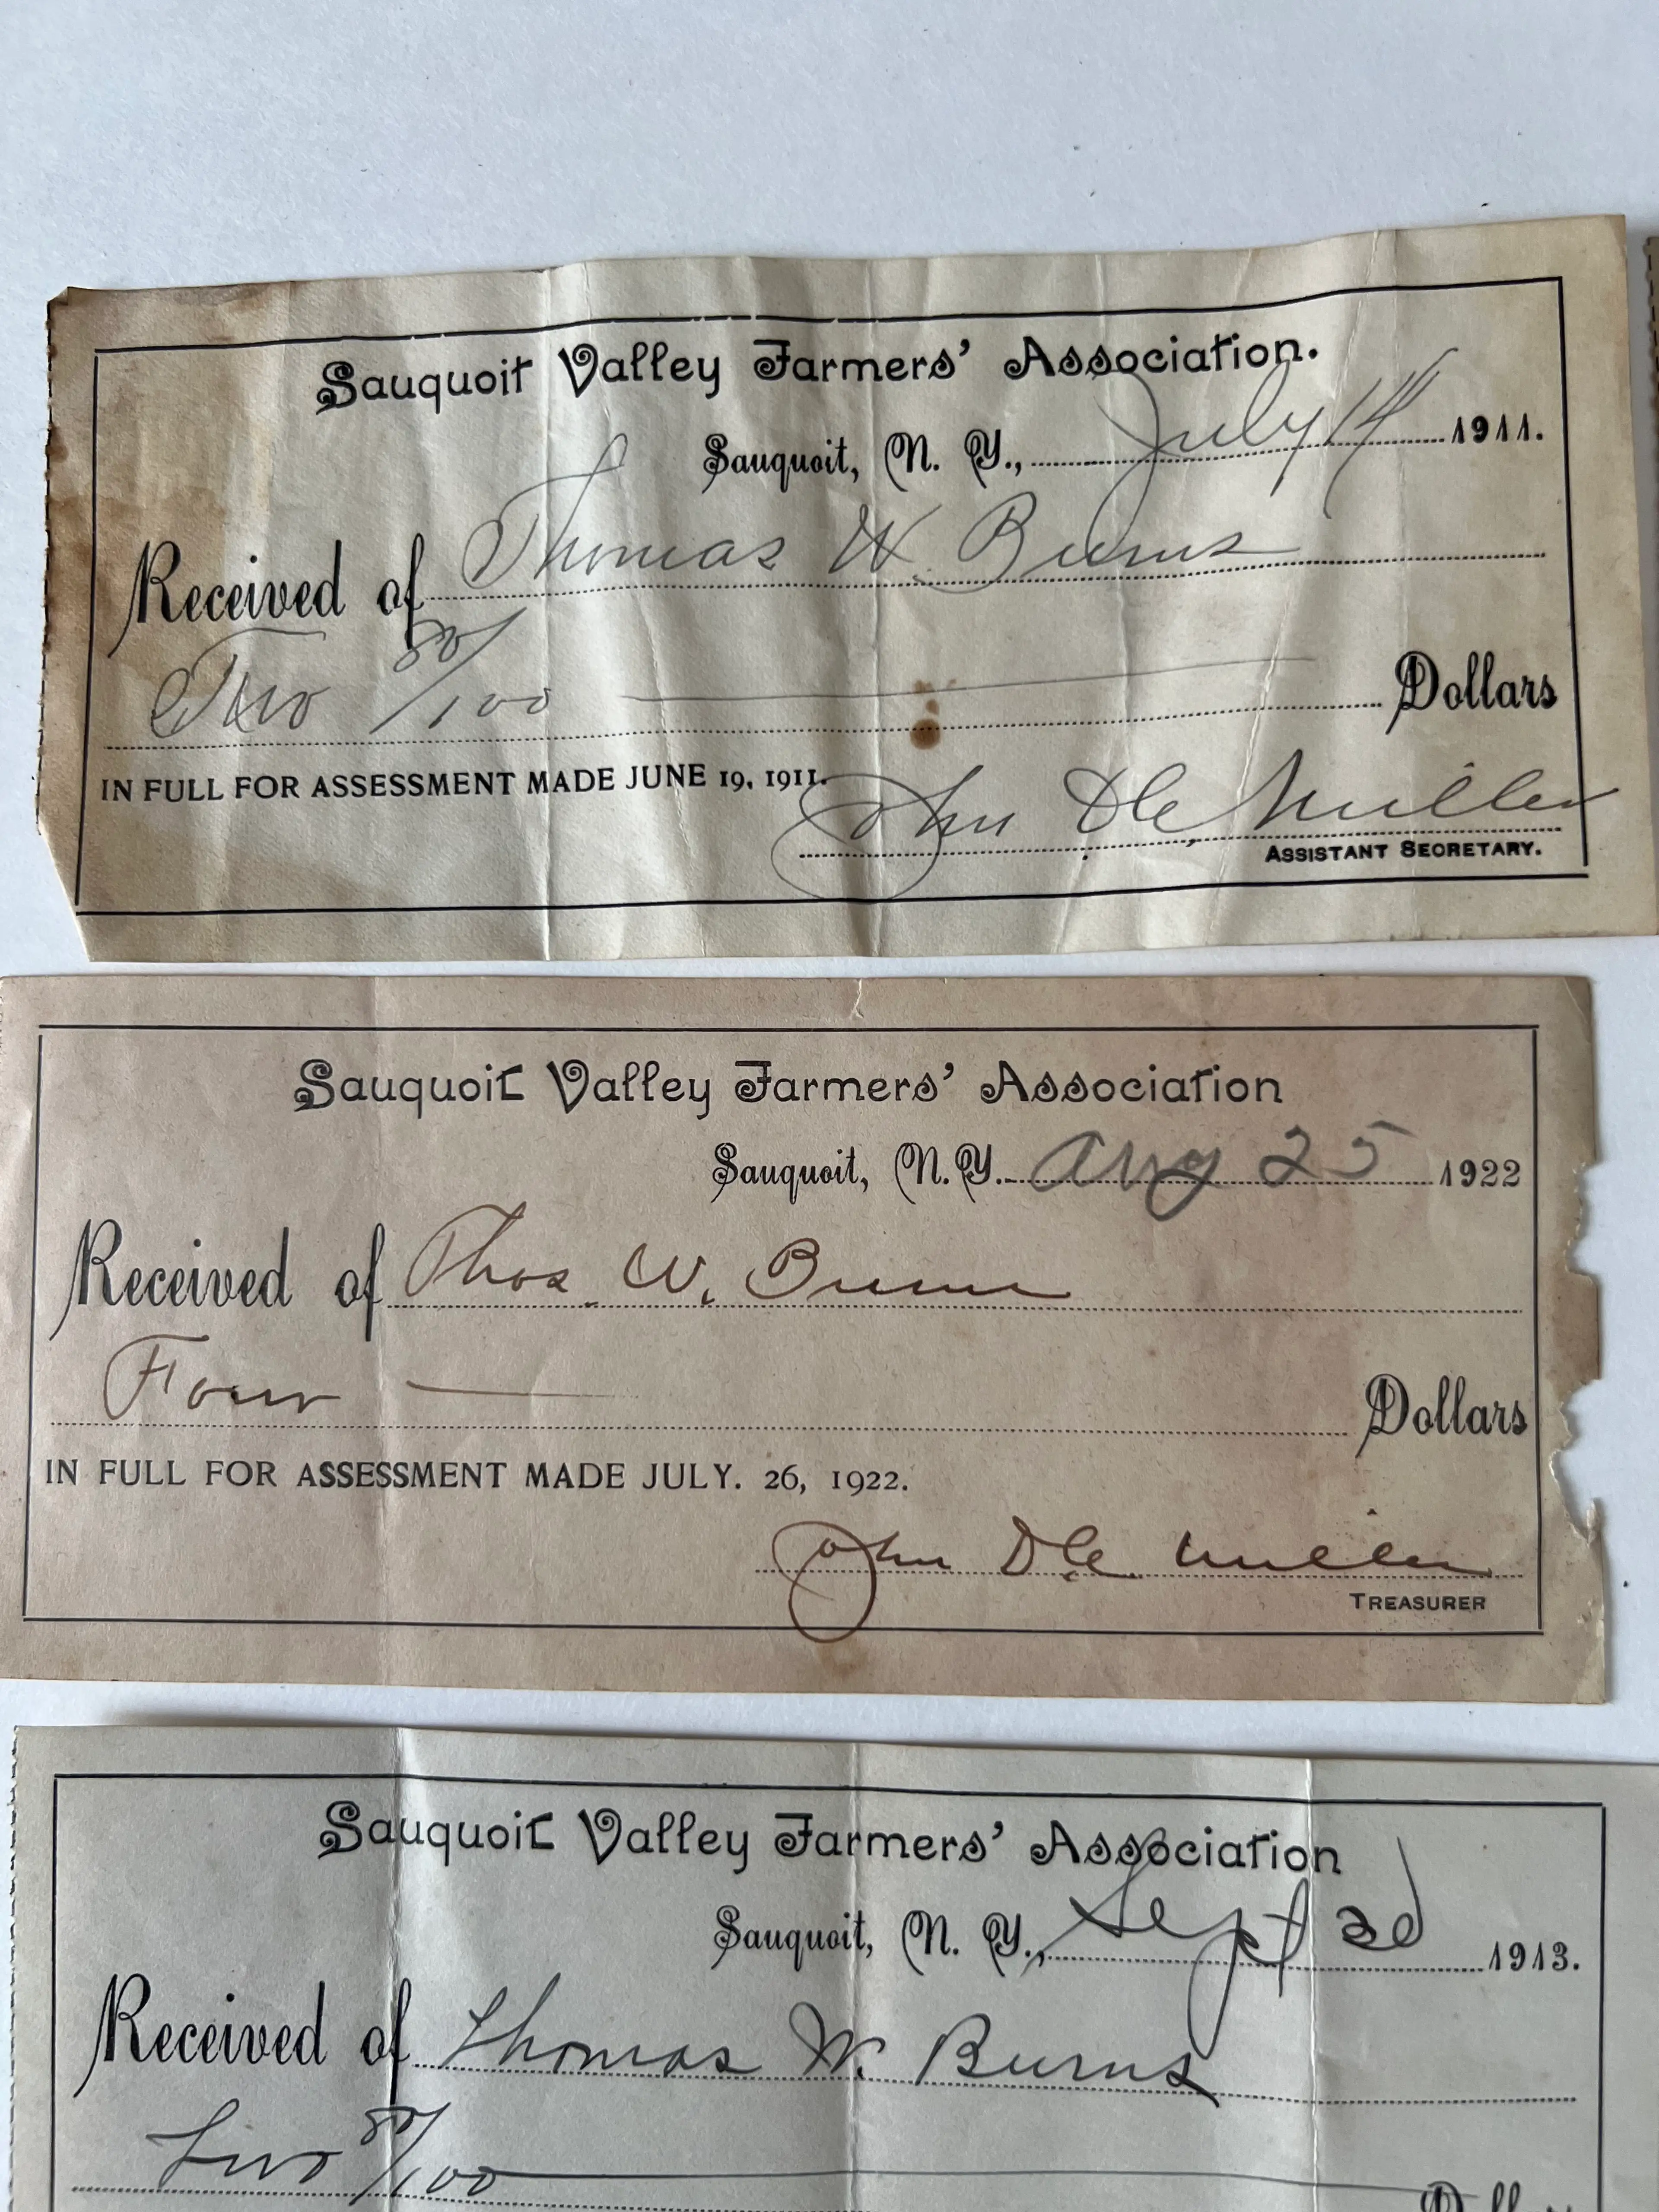 Sauquoit Valley Farmers' Association.
Sauquoit, N. Y., July 14 1911.
Received of Thomas W. Burns
Two 80/100 Dollars
IN FULL FOR ASSESSMENT MADE JUNE 19, 1911.
John De Miller
ASSISTANT SECRETARY.
Sauquoit Valley Farmers' Association
Sauquoit, N. Y. Aug 25 1922
Received of Thos. W. Burns
Four Dollars
IN FULL FOR ASSESSMENT MADE JULY. 26, 1922.
John Miller
TREASURER
Sauquoit Valley Farmers' Association
Sauquoit, N. Y., Sept 1913.
Received of Thomas W. Burns
Two 80/100